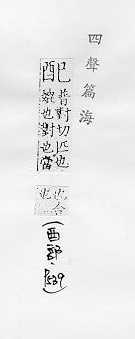 四聲篇海
配
普對切匹也
媲也對也當
也合
也
(酉部,